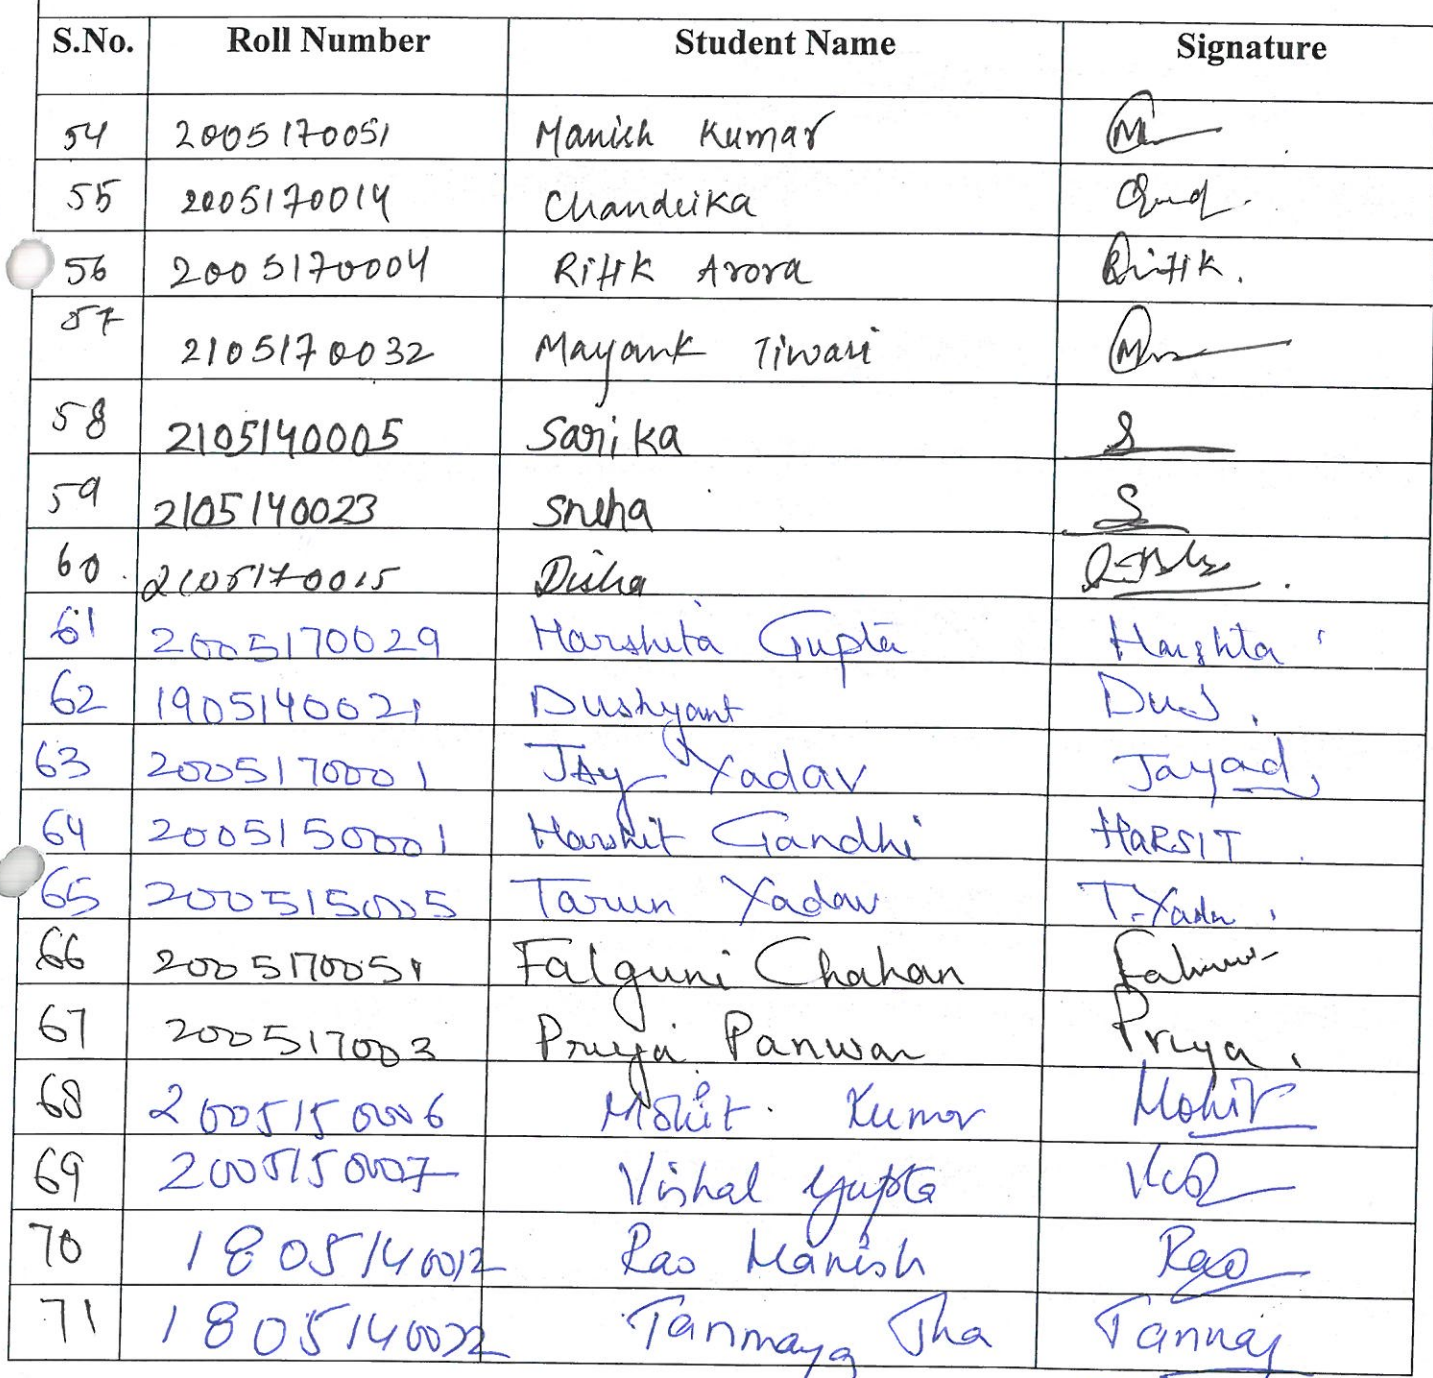 S.No. Roll Number Student Name Signature
54 2005170051 Manish Kumar
55 2005170014 Chandrika
56 2005170004 Ritik Arora Ritik.
57 2105170032 Mayank Tiwari
58 2105140005 Sarika S
59 2105140023 Sneha S
60 2105170015 Disha
61 2005170029 Harshita Gupta Harshta
62 1905140021 Dushyant Dus.
63 2005170001 Jay Yadav Jayad,
64 2005150001 Harshit Gandhi HARSIT
65 2005150005 Tarun Yadav T. Yadv
66 2005170051 Falguni Chahan
67 200517003 Priya Panwar Priya.
68 2005150006 Mohit Kumar Mohit
69 2005150007 Vishal Gupta
70 1805140012 Rao Manish Rao
71 1805140022 Tanmaya Jha Tanmay